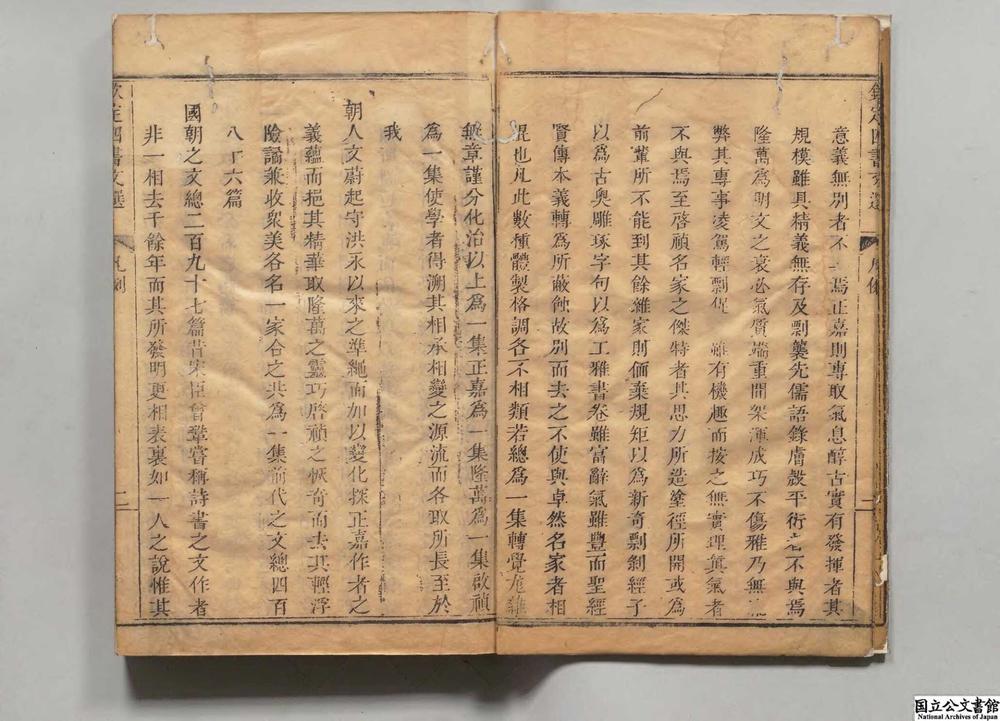 意義無別者不與焉正嘉則專取氣息醇古實有發揮者其
規模雖具精義無存及剽襲先儒語錄膚殼平衍者不與焉
隆萬為明文之衰必氣質端重間架渾成巧不傷雅乃無流
弊其專事凌駕輕剽促 雖有機趣而按之無實理真氣者
不與焉至啓禎名家之傑特者其思力所造塗徑所開或為
前輩所不能到其餘雜家則偭棄規矩以為新奇剽剝經子
以為古奧雕琢字句以為工雅書卷雖富辭氣雖豐而聖經
賢傳本義轉為所蔽蝕故別而去之不使與卓然名家者相
混也凡此數種體製格調各不相類若總為一集轉覺尨雜
無章謹分化治以上為一集正嘉為一集隆萬為一集啟禎
為一集使學者得溯其相承相變之源流而各取所長至於
我
朝人文蔚起守洪永以來之準繩而加以變化探正嘉作者之
義蘊而挹其精華取隆萬之靈巧啓禎之恢奇而去其輕浮
險譎兼收衆美各名一家合之共為一集前代之文總四百
八十六篇
國朝之文總二百九十七篇昔宋臣曾鞏嘗稱詩書之文作者
非一相去千餘年而其所發明更相表裏如一人之說惟其
欽定四書文選
凡例
二